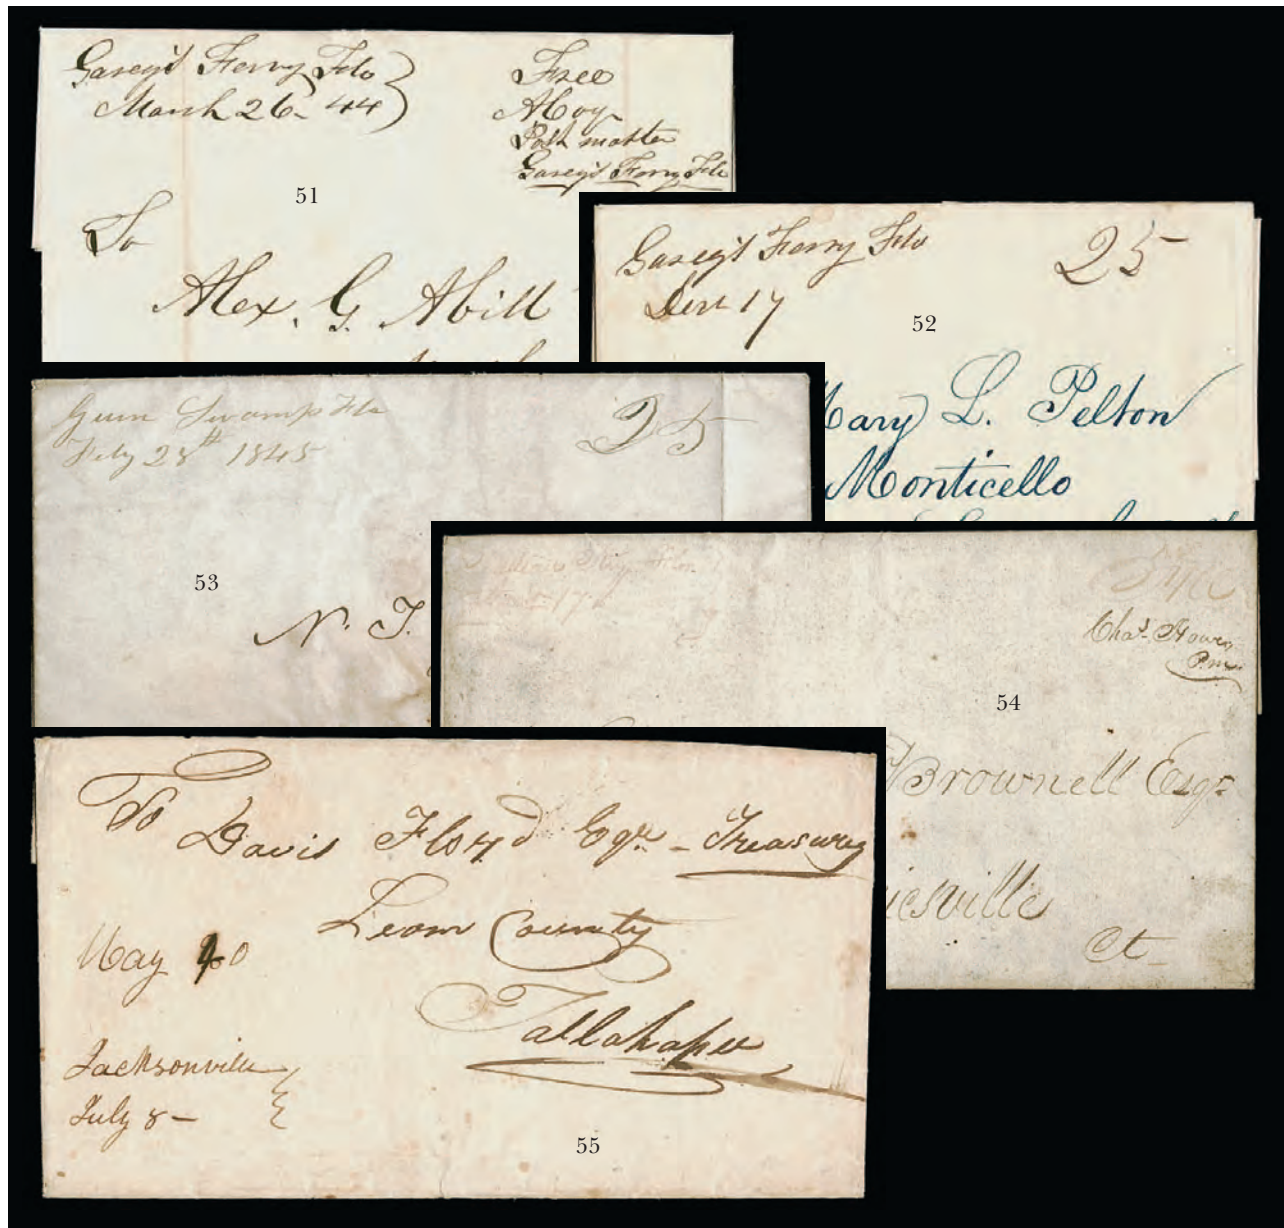 Garey's Ferry Flo
March 26 - 44
Free
A Coy
Post master
Garey's Ferry Flo
51
To
Alex. G. Abell
Garey's Ferry Flo
Decr 17
25
52
Mary L. Pelton
Monticello
Gum Swamp Fla
Feby 28th 1845
25
53
N. T.
17
Free
Chas. Howe
P.m.
54
Brownell Esqr
Ct
To
Davis Floyd Esqr - Treasurey
Leon County
Tallahassee
May 0
Jacksonville
July 8 -
55